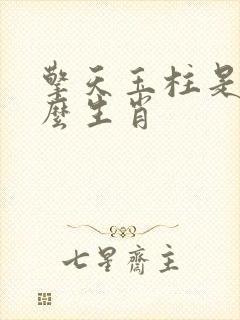 擎天玉柱是
麼生肖
七星齋主